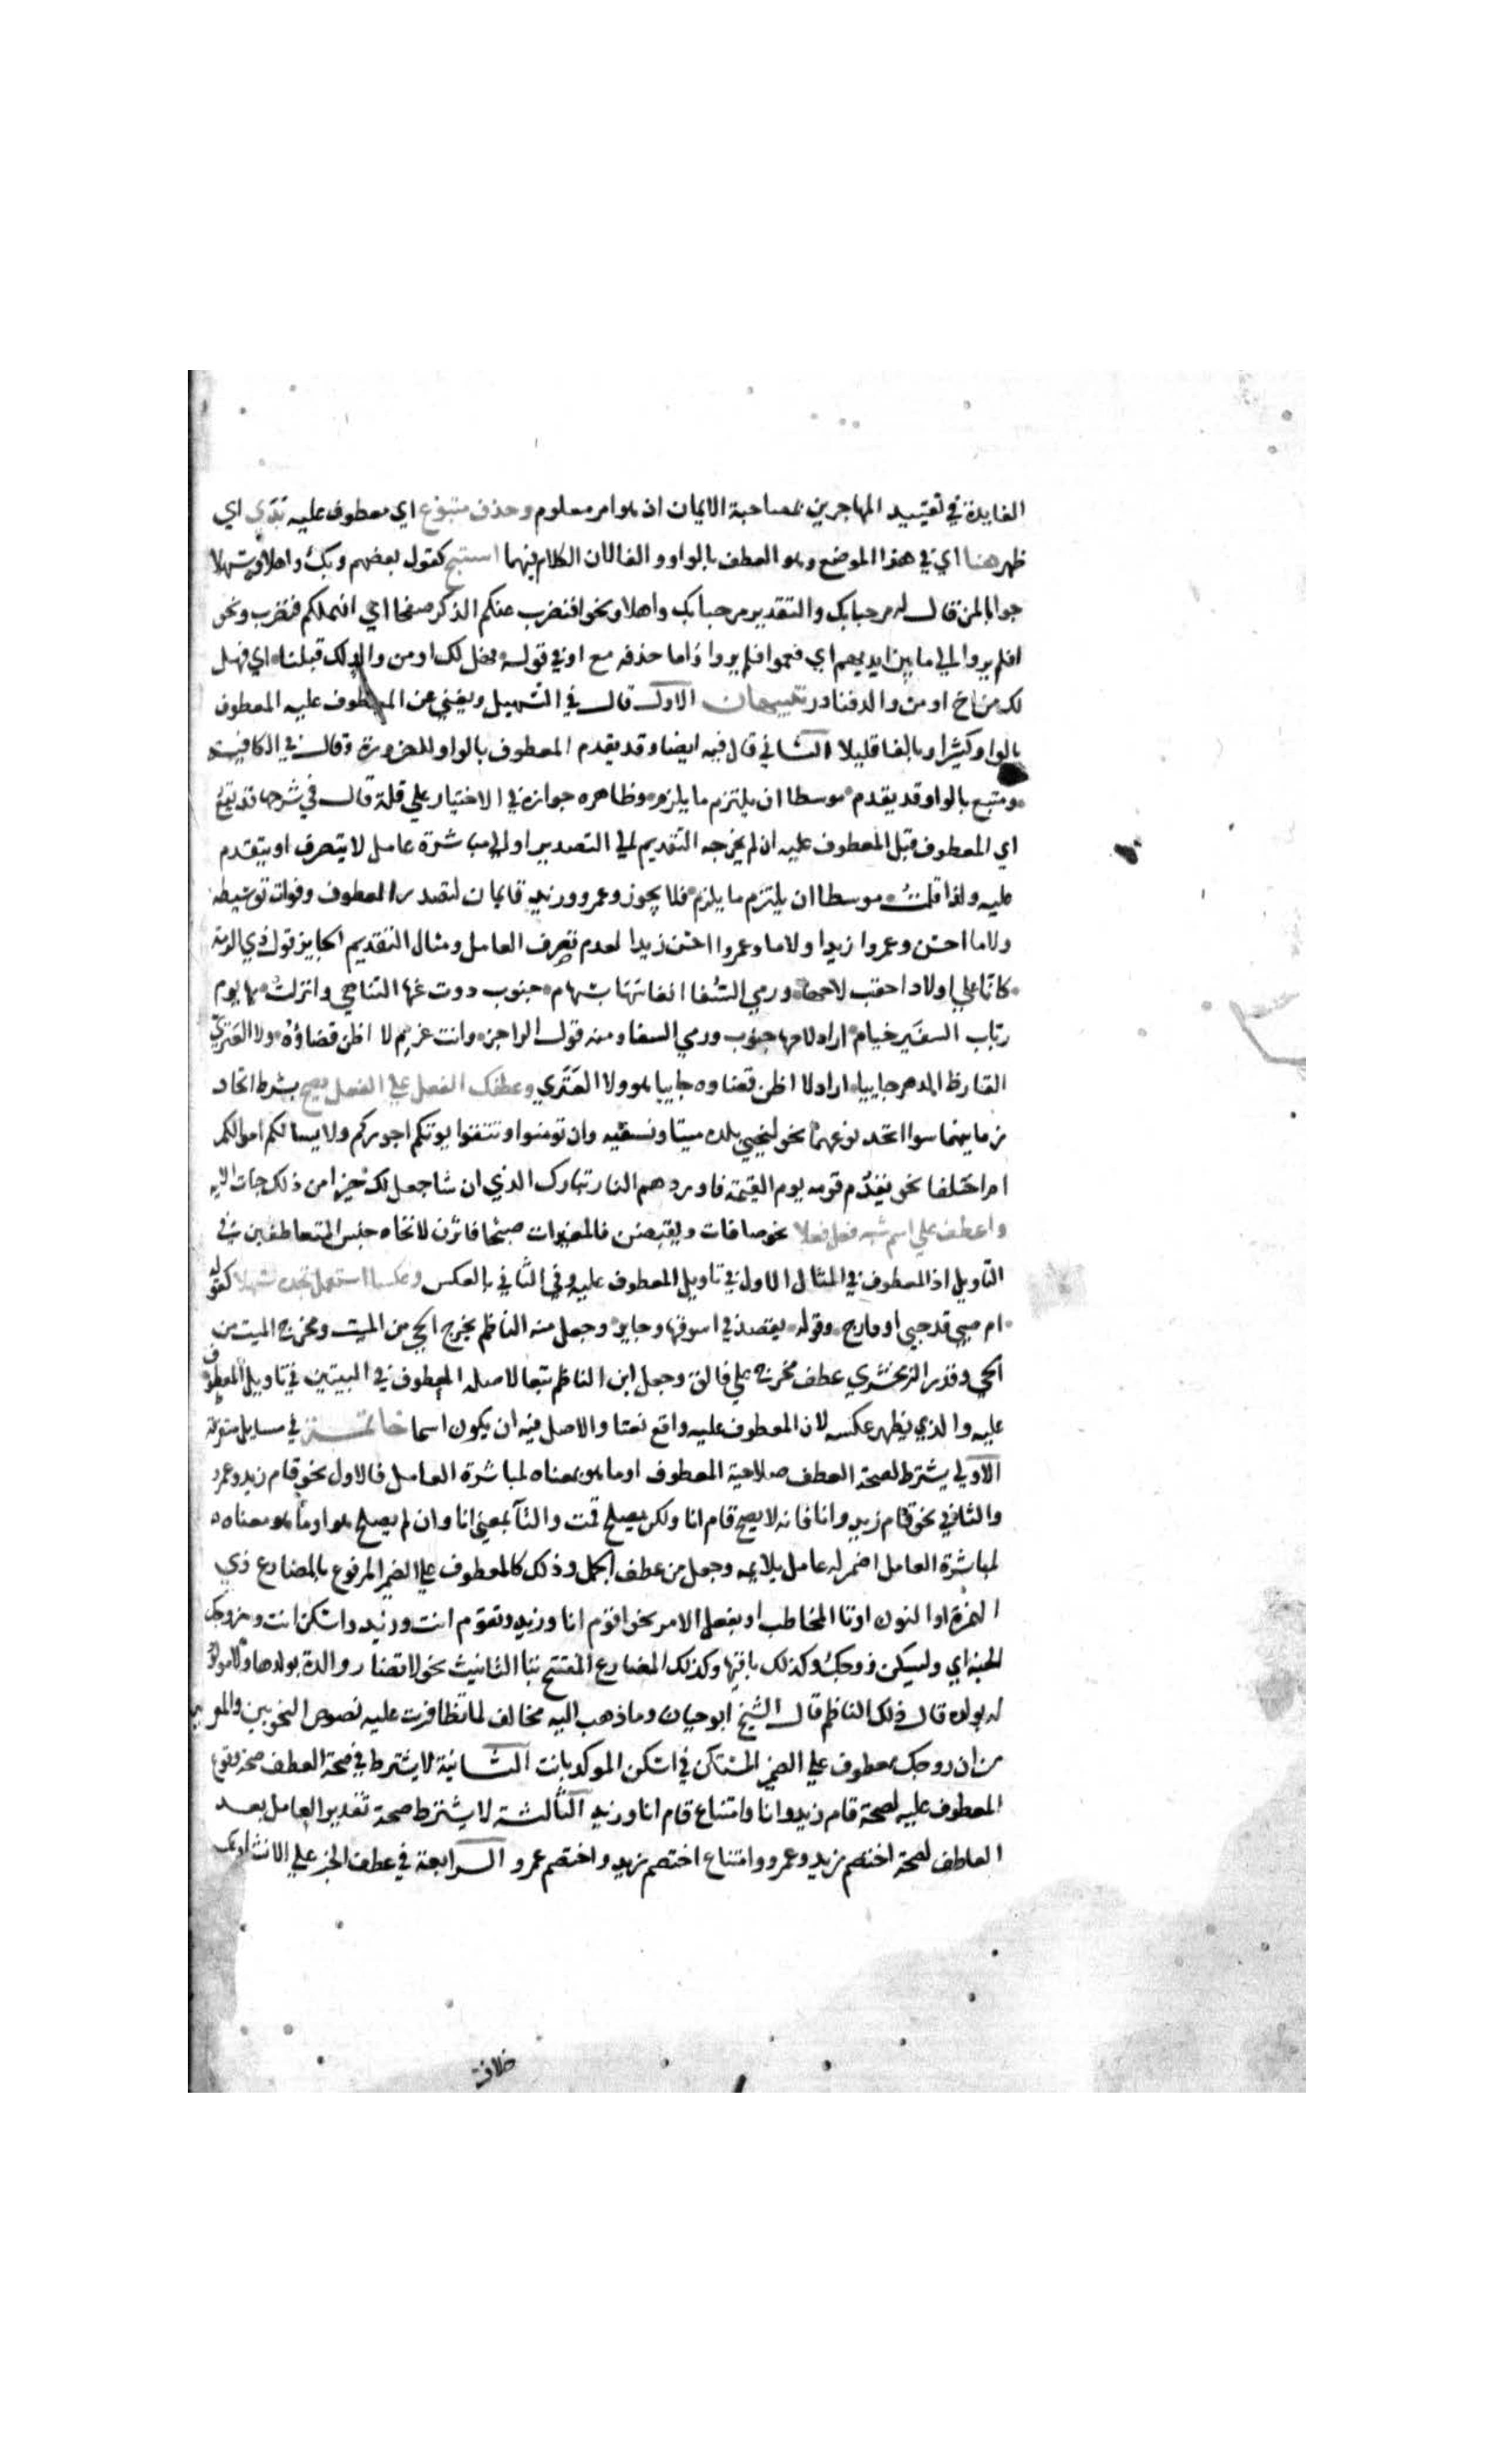 الفايدة في تقييد المهاجرين بمصاحبة الايمان اذ هو امر معلوم وحذف متبوع اي معطوف عليه بدي اي
ظهر هنا اي في هذا الموضع وهو العطف بالواو والفا لان الكلام فيهما استبح كقول بعضهم وبك واهلا وسهلا
جوابا لمن قال له مرحبا بك والتقدير مرحبا بك واهلا ونحو افنضرب عنكم الذكر صفحا اي انهملكم فنضرب ونحو
افلم يروا الي ما بين ايديهم اي فعموا فلم يروا اذاما حذفه مع او في قوله فهل لك او من والد لك قبلنا اي فهل
لك من اخ او من والد فنادر تنبيهان الاول قال في التسهيل ويغني عن المعطوف عليه المعطوف
بالواو كثيرا وبالفا قليلا الثاني قال فيه ايضا وقد يقدم المعطوف بالواو للضرورة وقال في الكافية
ومتبع بالواو قد يقدم موسطا ان يلتزم ما يلزم وظاهره جوازه في الاختيار علي قلة قال في شرحها قد يقع
اي المعطوف قبل المعطوف عليه ان لم يخرجه التقديم الي التصدير او الي مباشرة عامل لا يتصرف او يتقدم
عليه ولذا قلت موسطا ان يلتزم ما يلزم فلا يجوز وعمرو وزيد قايمان لتصدر المعطوف وفوات توسيطه
ولاما احسن وعمروا زيدا ولاما وعمروا احسن زيدا لعدم تصرف العامل ومثال التقديم الجايز قول ذي الرمة
كانا علي اولاد احقب لاحها ورمي السفا انفاسها بسهام جنوب دوت عنها التناهي وانزلت بها يوم
رباب السفير خيام اراد لاحها جنوب ورمي السفا ومنه قول الراجز وانت غريم لا اظن قضاؤه ولا العنزي
القارظ الدهر جاييا اراد لا اظن قضاوه جاييا هو ولا العنزي وعطفك الفعل علي الفعل يصح بشرط اتحاد
زمانيهما سوا اتحد نوعهما نحو لنحيي بلدة ميتا ونسقيه وان تومنوا وتتقوا يوتكم اجوركم ولا يسالكم اموالكم
ام اختلفا نحو يقدم قومه يوم القيمة فاوردهم النار تبارك الذي ان شا جعل لك خيرا من ذلك جنات الايه
واعطف علي اسم شبه فعل فعلا نحو صافات ويقبضن فالمغيرات صبحا فاثرن لاتحاد جنس المتعاطفين في
التاويل اذ المعطوف في المثال الاول في تاويل المعطوف عليه وفي الثاني بالعكس وعكسا استعمل تجده سهلا كقوله
ام صبي قد حبي او دارج وقوله يقصد في اسوقها وجاير وجعل منه الناظم يخرج الحي من الميت ومخرج الميت من
الحي وقدر الزمخشري عطف مخرج علي فالق وجعل ابن الناظم تبعا لاصله المعطوف في البيتين في تاويل المعطوف
عليه والذي يظهر عكسه لان المعطوف عليه واقع نعتا والاصل فيه ان يكون اسما خاتمة في مسايل متفرقة
الاولي يشترط لصحة العطف صلاحية المعطوف او ما هو بمعناه لمباشرة العامل فالاول نحو قام زيد وعمرو
والثاني نحو قام زيد وانا فانه لا يصح قام انا ولكن يصلح قمت والتا بمعني انا وان لم يصلح هو او ما هو بمعناه
لمباشرة العامل اضمر له عامل يلايمه وجعل من عطف الجمل وذلك كالمعطوف علي الضمير المرفوع بالمضارع ذي
الهمزة او النون او تا المخاطب او بفعل الامر نحو اقوم انا وزيد وتقوم انت وزيد واسكن انت وزوجك
الجنة اي وليسكن زوجك وكذلك باقيها وكذلك المضارع المفتتح بتا التانيث نحو لا تضار والدة بولدها ولا مولود
له بولده قال ذلك الناظم قال الشيخ ابو حيان وما ذهب اليه مخالف لما تظافرت عليه نصوص النحويين والمعربين
من ان زوجك معطوف علي الضمير المستكن في اسكن الموكد بانت الثانية لا يشترط في صحة العطف صحة وقوع
المعطوف عليه لصحة قام زيد وانا وامتناع قام انا وزيد الثالثة لا يشترط صحة تقدير العامل بعد
العاطف لصحة اختصم زيد وعمرو وامتناع اختصم زيد واختصم عمرو الرابعة في عطف الخبر علي الانشا وعكسه
خلاف